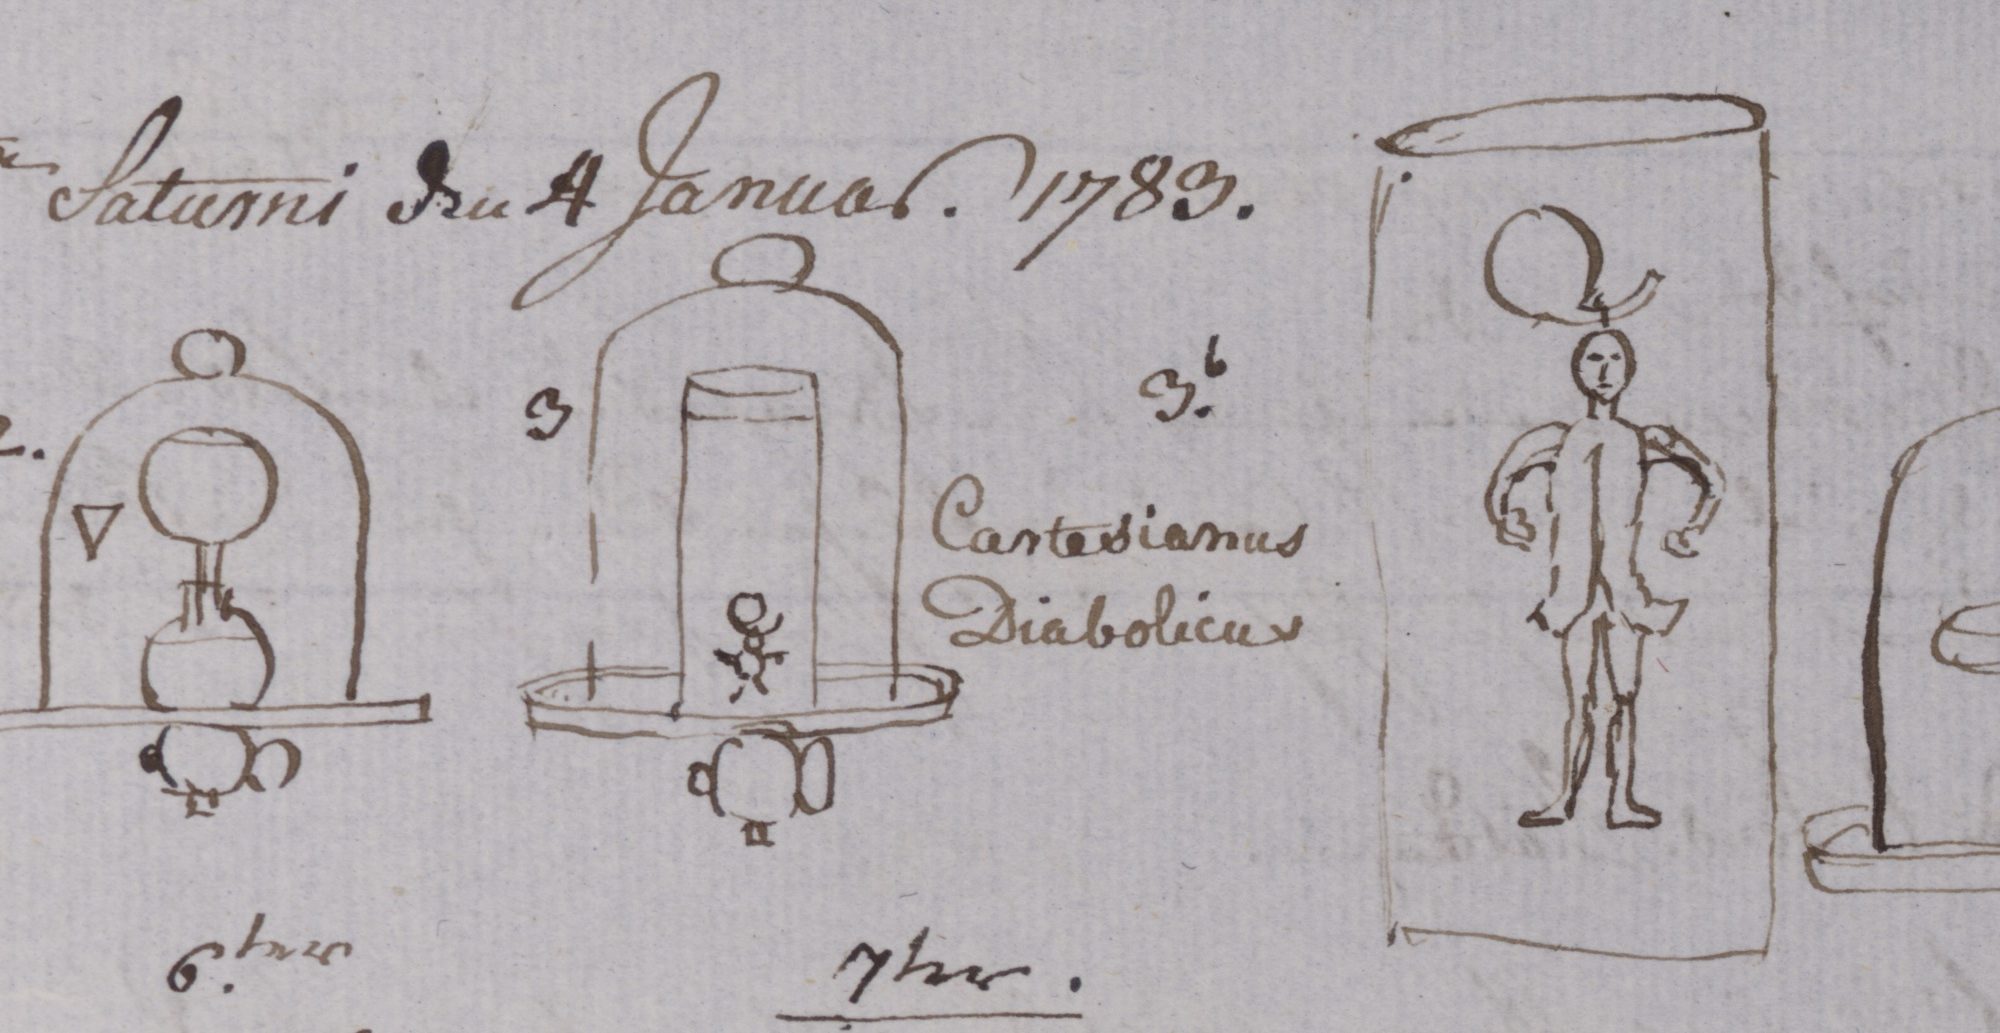 Saturni den 4 Januar. 1783.
2.
3
3.b
Cartesianus
Diabolicus
6.ter
7ter.